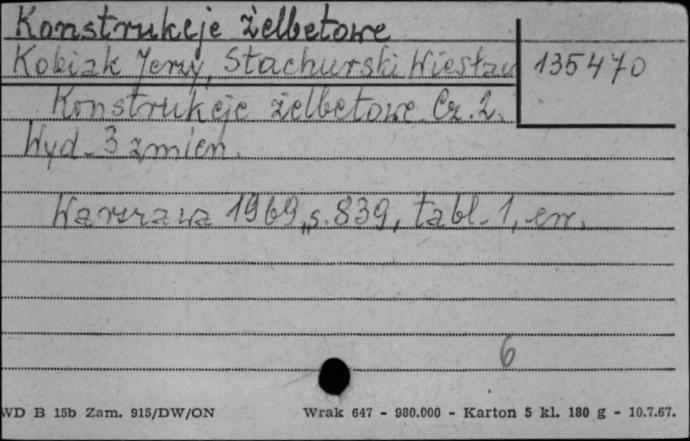 Konstrukcje żelbetowe
Kobiak Jerzy, Stachurski Wiesław
135470
Konstrukcje żelbetowe. Cz. 2.
Wyd. 3 zmien.
Warszawa 1969, s. 839, tabl. 1, err.
6
WD B 15b Zam. 915/DW/ON Wrak 647 - 980.000 - Karton 5 kl. 180 g - 10.7.67.